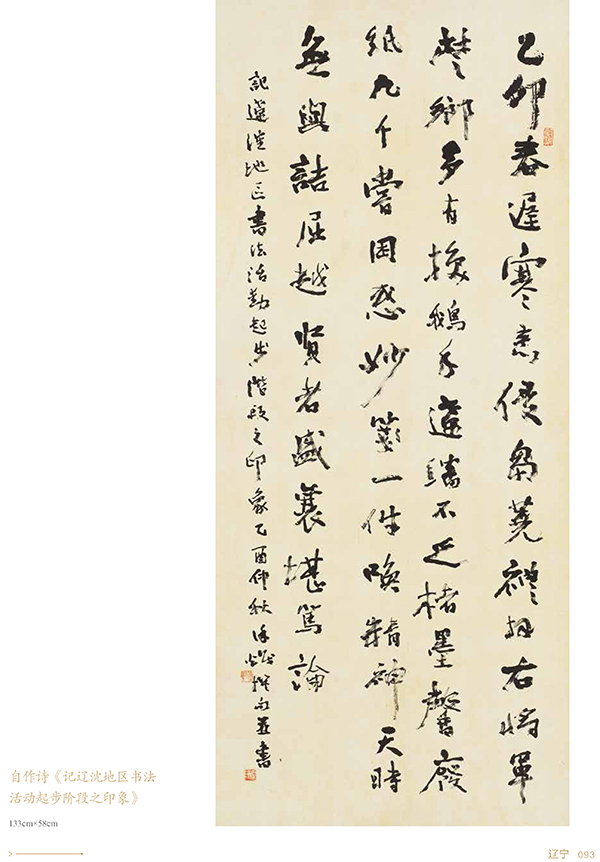 乙卯春遲寒意侵芻蕘禮拜右將軍
楚鄉多有換鵝手不乏楮墨馨廢
紙九千嘗困惑妙箋一件喚精神天時
無與詰屈越賢者盛襄堪篤論
記遼瀋地区書法活動起步階段之印象乙酉仲秋撰句並書
自作诗《记辽沈地区书法
活动起步阶段之印象》
133cm×58cm
辽宁 093